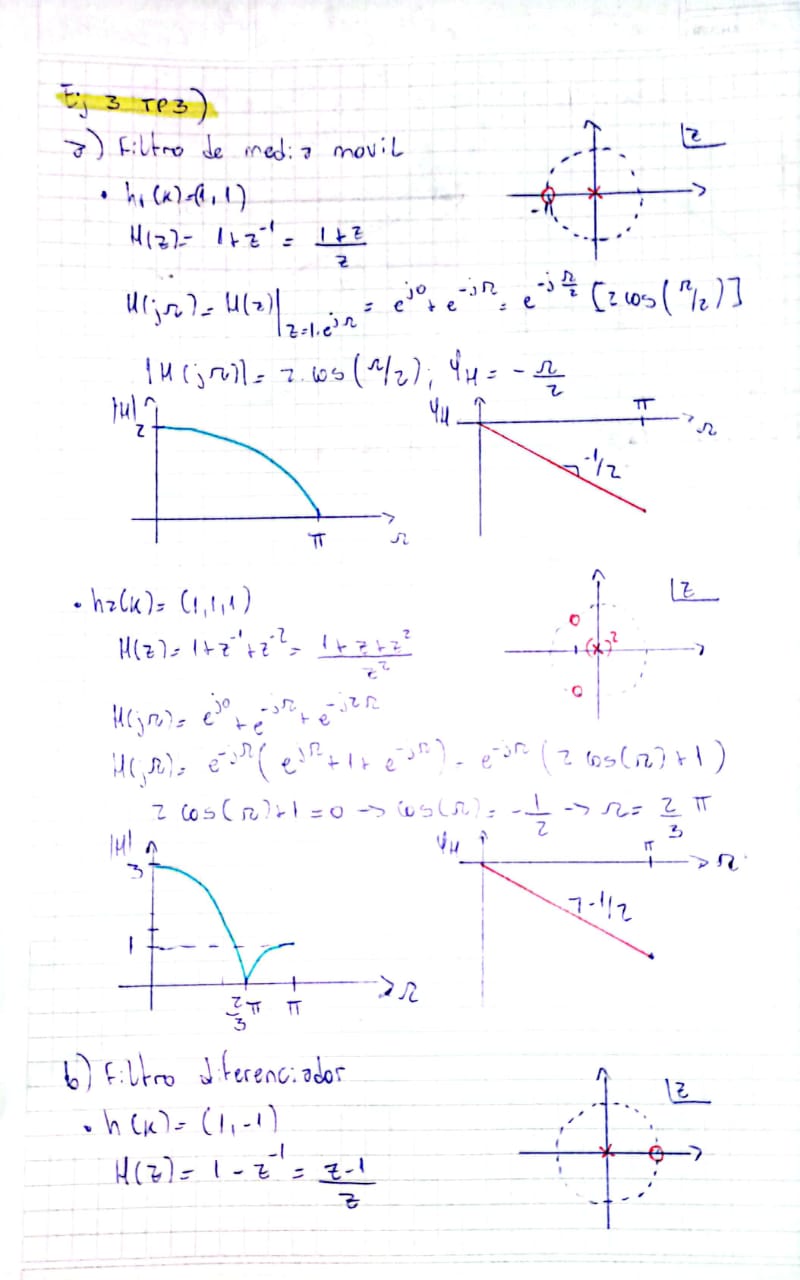 Ej 3 TP3)
a) Filtro de media movil
z
• h₁(k)=(1,1)
-1
H(z)= 1+z⁻¹ = (1+z)/z
H(jΩ)= H(z)|z=1.e^{jΩ} = e^{j0}+e^{-jΩ} = e^{-jΩ/2} [2 cos(Ω/2)]
|H(jΩ)|= 2.cos(Ω/2); φH = -Ω/2
|H|
φH
π
Ω
2
-1/2
π
Ω
• h2(k)= (1,1,1)
z
H(z)= 1+z⁻¹+z⁻² = (1+z+z²)/z²
(x)²
H(jΩ)= e^{j0}+e^{-jΩ}+e^{-j2Ω}
H(jΩ)= e^{-jΩ}(e^{jΩ}+1+e^{-jΩ}) = e^{-jΩ}(2 cos(Ω)+1)
2 cos(Ω)+1=0 → cos(Ω)= -1/2 → Ω= 2/3 π
|H|
φH
π
Ω
3
-1/2
1
2/3 π
π
Ω
b) Filtro diferenciador
z
• h(k)= (1,-1)
H(z)= 1-z⁻¹ = (z-1)/z